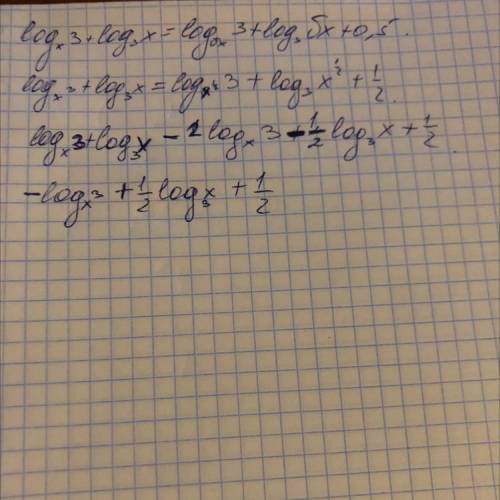 logₓ3+log₃x=log√ₓ3+log₃√x+0,5.
logₓ3+log₃x=logₓ½3+log₃x^½+½.
logₓ3+log₃x-2logₓ3-½log₃x+½.
-logₓ3+½log₃x+½